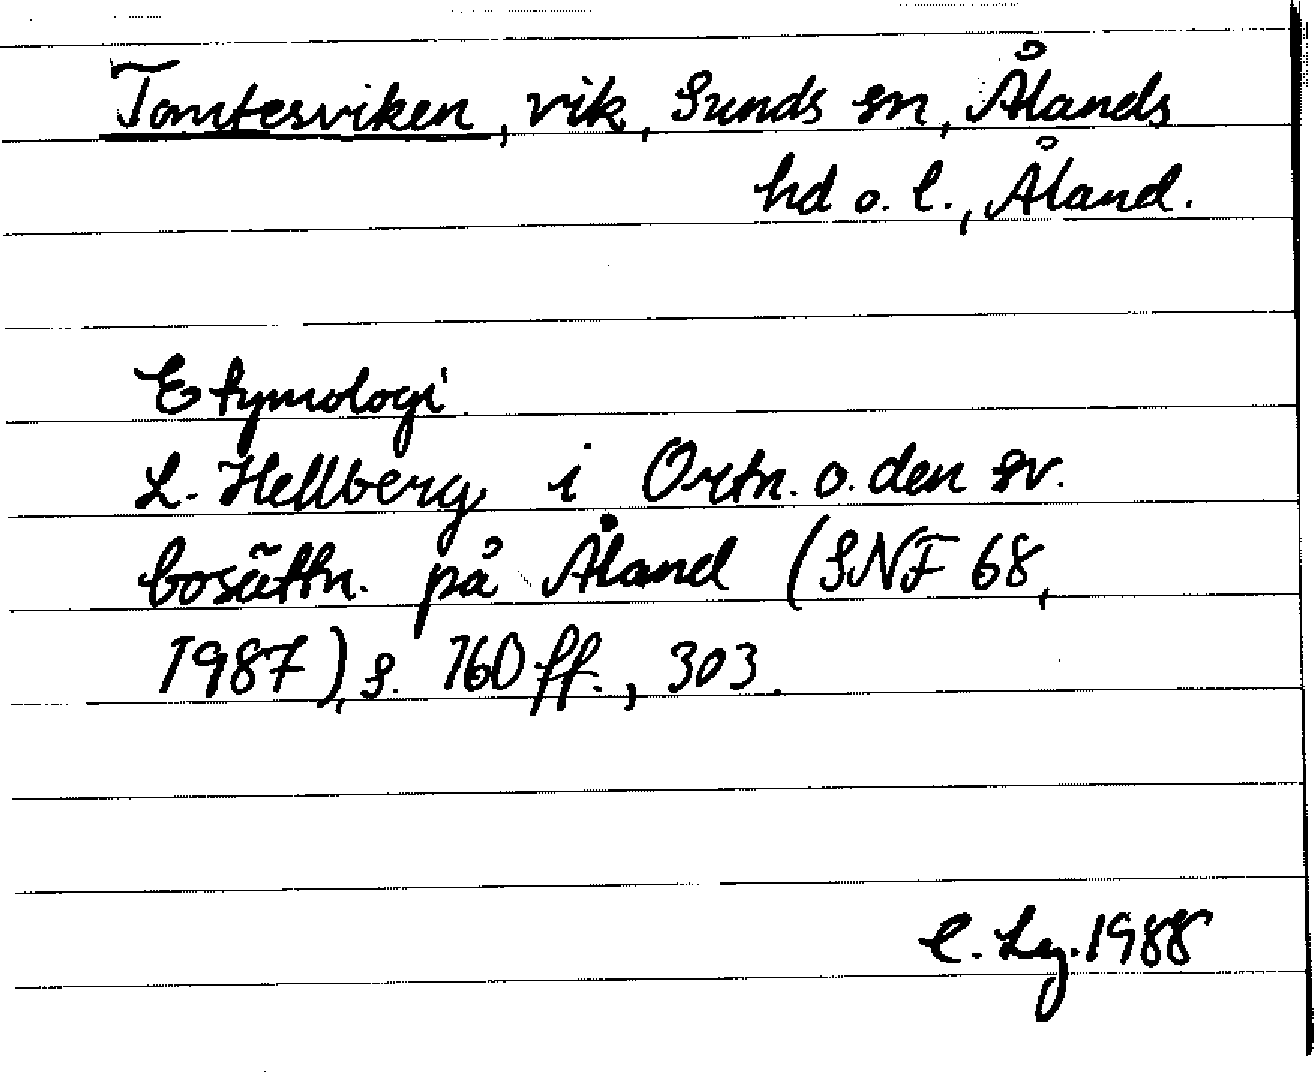 Tomtesviken, vik, Sunds sn, Ålands
hd o. l., Åland.
Etymologi
L. Hellberg i Ortn. o. den sv.
bosättn. på Åland (SNF 68,
1987), s. 160 ff., 303.
C. Lzg. 1988